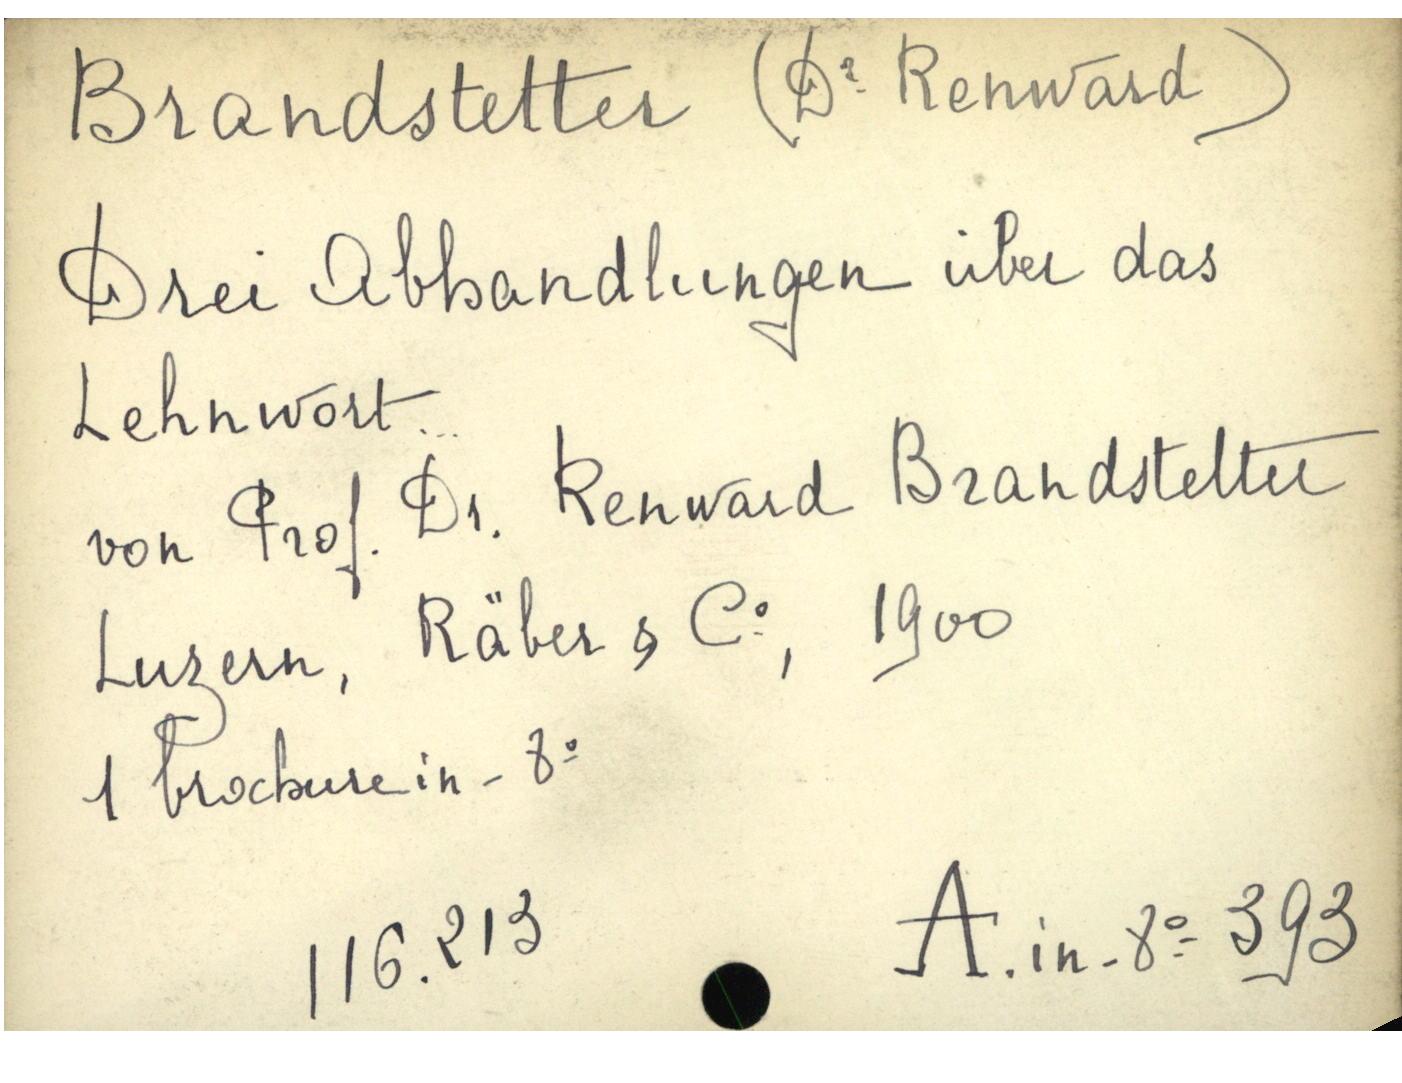 Brandstetter (Dr. Renward)
Drei Abhandlungen über das
Lehnwort...
von Prof. Dr. Renward Brandstetter
Luzern, Räber & Co., 1900
1 brochure in-8°
116.213
A. in-8° 393